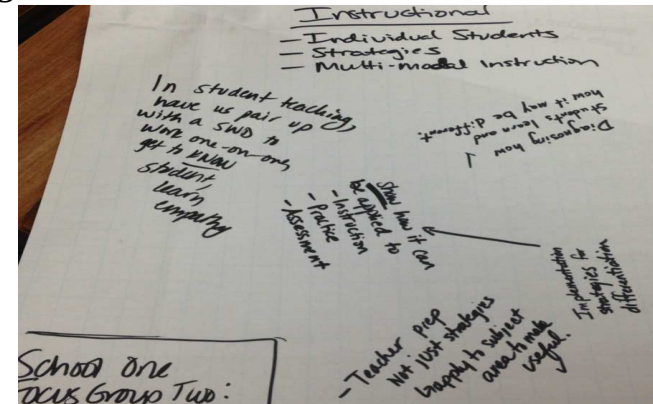 Instructional
- Individual Students
- Strategies
- Multi-modal Instruction
In student teaching,
have us pair up
with a SWD to
work one-on-one,
get to KNOW
student,
learn
empathy
Diagnosing how
students learn and
how it may be different.
Show how it can
be applied to
- Instruction
- Practice
- Assessment
Implementation
strategies for
differentiation
- Teacher prep
Not just strategies
apply to subject
area to make
useful.
School One
Focus Group Two: